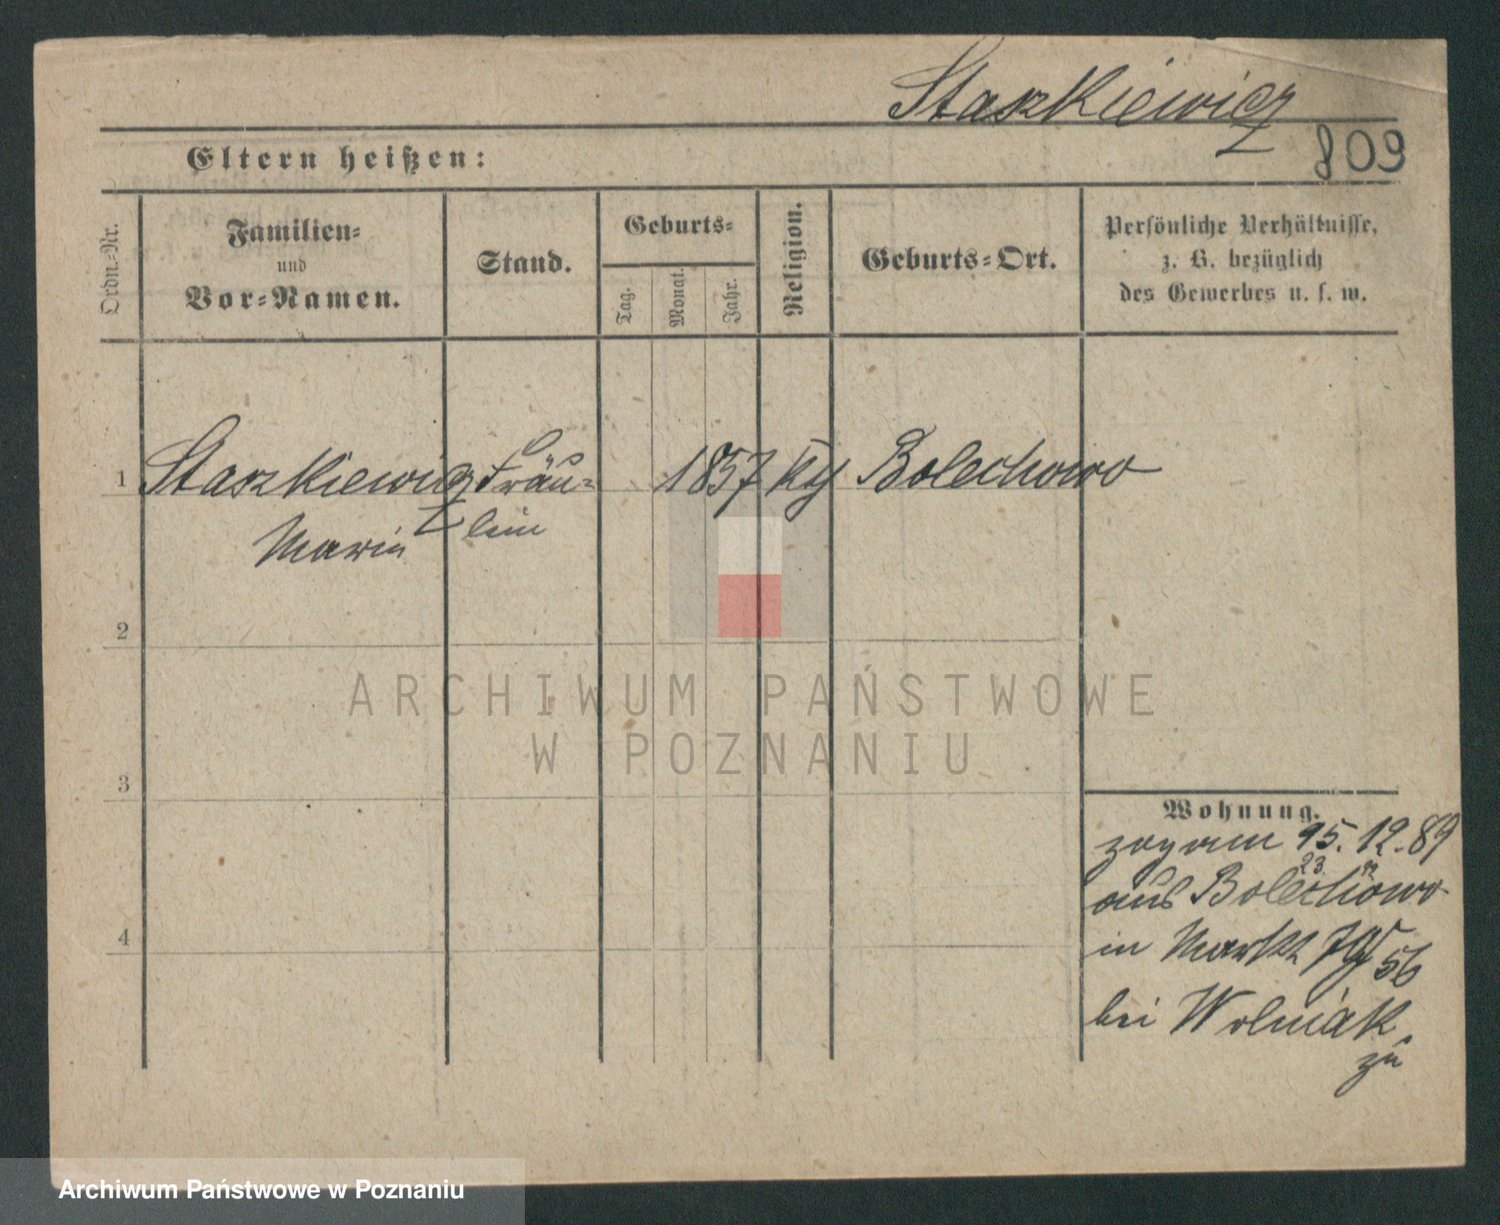 Staszkiewicz
809
Eltern heißen:
Ordn.-Nr.
Familien-
und
Vor-Namen.
Stand.
Geburts-
Tag.
Monat.
Jahr.
Religion.
Geburts-Ort.
Persönliche Verhältnisse,
z. B. bezüglich
des Gewerbes u. s. w.
1 Staszkiewicz Fräu- 1857 Bolechowo
Marie lein
2
3
4
Wohnung.
zog am 15. 12. 89
23.
aus Bolechowo
in Markt 56
bei Wolniak
zu
ARCHIWUM PAŃSTWOWE
W POZNANIU
Archiwum Państwowe w Poznaniu